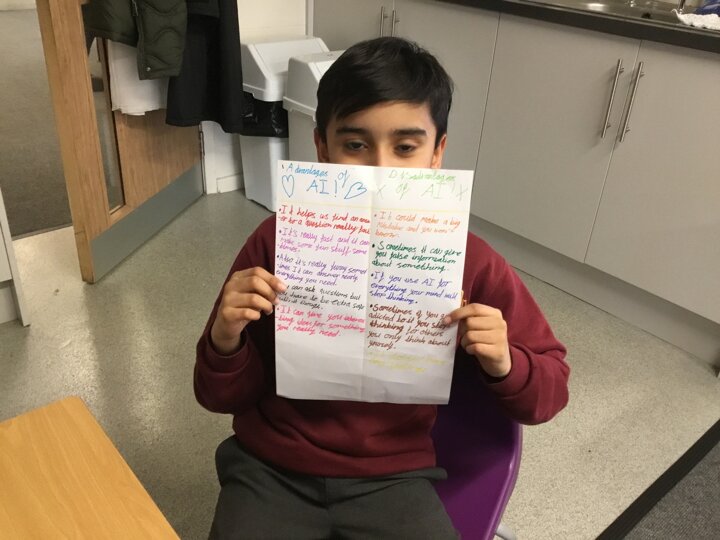 Advantages of
AI!
• It helps us find an
to a question really fas
• It's really fast and it can
some fun stuff some
times.
• Also it's really funny some
times it can answer nearly
everything you need.
can ask questions but
you have to be extra safe
• It can give you interes
ting ideas for something
you really need.
Disadvantages
x of AI! x
• It could make a big
mistake and you won't
know.
• Sometimes it can give
you false information
about something.
• If you use AI for
everything your mind will
stop thinking.
• Sometimes if you
adicted to it you stop
thinking for others
you only think about
yourself.